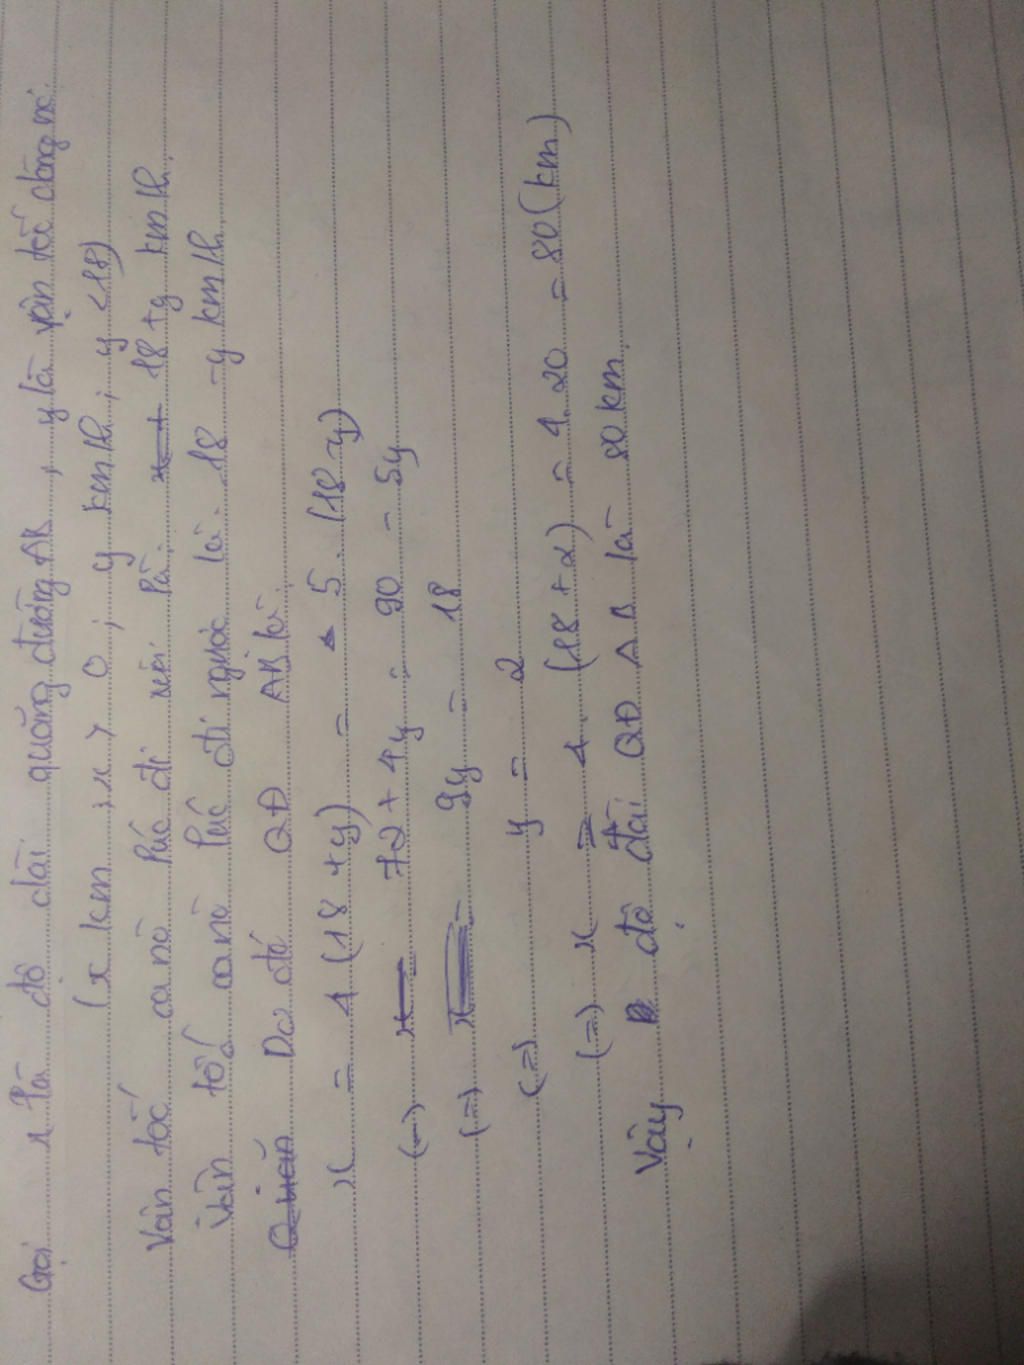 Gọi x là độ dài quãng đường AB, y là vận tốc dòng nc.
(x km; x > 0; y km/h; y < 18)
Vận tốc ca nô lúc đi xuôi là: 18 + y km/h.
Vận tốc ca nô lúc đi ngược là: 18 - y km/h.
Do đó QĐ AB là:
x = 4(18 + y) = 5.(18 - y)
(=) 72 + 4y = 90 - 5y
(=) 9y = 18
(=) y = 2
(=) x = 4.(18 + 2) = 4.20 = 80 (km)
Vậy độ dài QĐ AB là 80km.